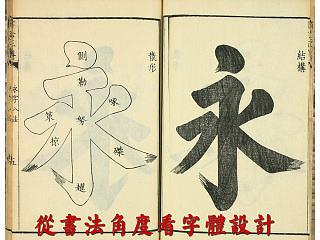 結構
永
形
側
勒
努
趯
策
掠
啄
磔
永字八法
從書法角度看字體設計